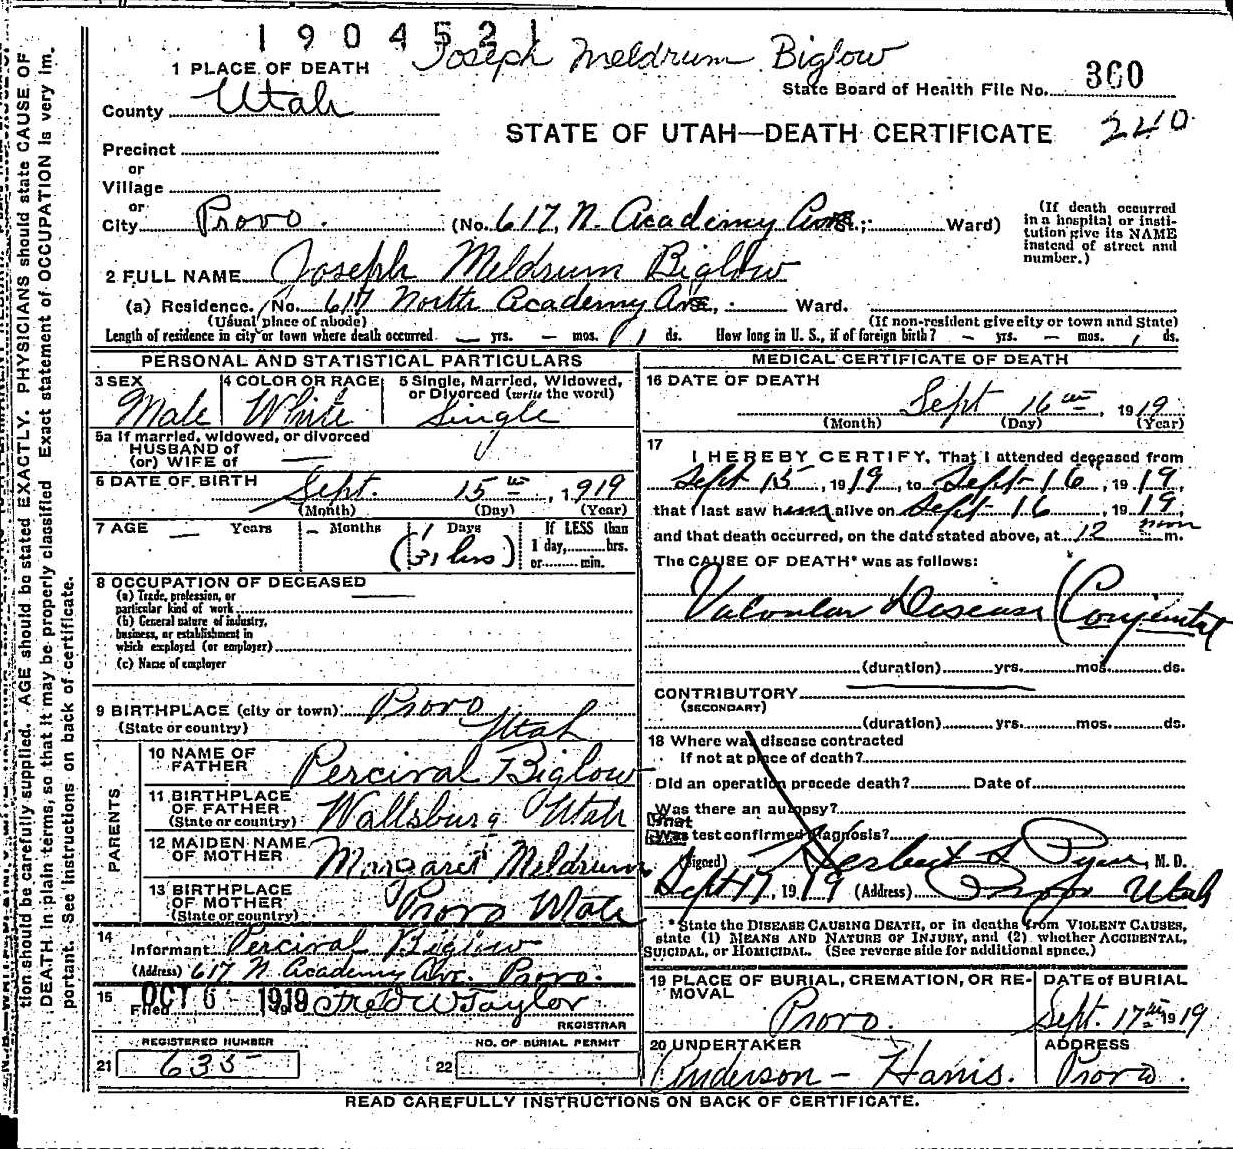 1904521
Joseph Meldrum Biglow
1 PLACE OF DEATH
State Board of Health File No. 360
County Utah
STATE OF UTAH—DEATH CERTIFICATE
240
Precinct
or
Village
or
City Provo. (No. 617, N. Academy Ave St.; Ward)
(If death occurred in a hospital or institution give its NAME instead of street and number.)
2 FULL NAME Joseph Meldrum Biglow
(a) Residence. No. 617 North Academy Ave, Ward.
(Usual place of abode) (If non-resident give city or town and State)
Length of residence in city or town where death occurred — yrs. — mos. 1 ds. How long in U. S., if of foreign birth? — yrs. — mos. ds.
PERSONAL AND STATISTICAL PARTICULARS
3 SEX Male
4 COLOR OR RACE White
5 Single, Married, Widowed, or Divorced (write the word) Single
5a If married, widowed, or divorced
HUSBAND of
(or) WIFE of —
6 DATE OF BIRTH Sept. 15th, 1919
(Month) (Day) (Year)
7 AGE — Years — Months 1 Days (31 hrs)
If LESS than
1 day, hrs.
or min.
8 OCCUPATION OF DECEASED
(a) Trade, profession, or particular kind of work —
(b) General nature of industry, business, or establishment in which employed (or employer)
(c) Name of employer
9 BIRTHPLACE (city or town) Provo
(State or country) Utah
PARENTS
10 NAME OF FATHER Percival Biglow
11 BIRTHPLACE OF FATHER (State or country) Wallsburg Utah
12 MAIDEN NAME OF MOTHER Margaret Meldrum
13 BIRTHPLACE OF MOTHER (State or country) Provo Utah
14 Informant Percival Biglow
(Address) 617 N. Academy Ave. Provo.
15 Filed OCT 6 - 1919 Fred W Taylor
REGISTRAR
REGISTERED NUMBER
21 635
NO. OF BURIAL PERMIT
22
MEDICAL CERTIFICATE OF DEATH
16 DATE OF DEATH Sept 16th, 1919
(Month) (Day) (Year)
17 I HEREBY CERTIFY, That I attended deceased from
Sept 15, 1919, to Sept 16, 1919,
that I last saw him alive on Sept 16, 1919,
and that death occurred, on the date stated above, at 12 noon m.
The CAUSE OF DEATH* was as follows:
Valvular Disease (Conjenital
(duration) yrs. mos. ds.
CONTRIBUTORY
(SECONDARY)
(duration) yrs. mos. ds.
18 Where was disease contracted
if not at place of death?
Did an operation precede death? Date of
Was there an autopsy?
What test confirmed diagnosis?
(Signed) Herbert S Pyne, M. D.
Sept 17, 1919 (Address) Provo Utah
*State the DISEASE CAUSING DEATH, or in deaths from VIOLENT CAUSES,
state (1) MEANS AND NATURE OF INJURY, and (2) whether ACCIDENTAL,
SUICIDAL, or HOMICIDAL. (See reverse side for additional space.)
19 PLACE OF BURIAL, CREMATION, OR REMOVAL Provo.
DATE of BURIAL Sept. 17th 1919
20 UNDERTAKER Anderson - Harris.
ADDRESS Provo.
READ CAREFULLY INSTRUCTIONS ON BACK OF CERTIFICATE.
tion should be carefully supplied. AGE should be stated EXACTLY. PHYSICIANS should state CAUSE OF
DEATH in plain terms, so that it may be properly classified. Exact statement of OCCUPATION is very im-
portant. See instructions on back of certificate.